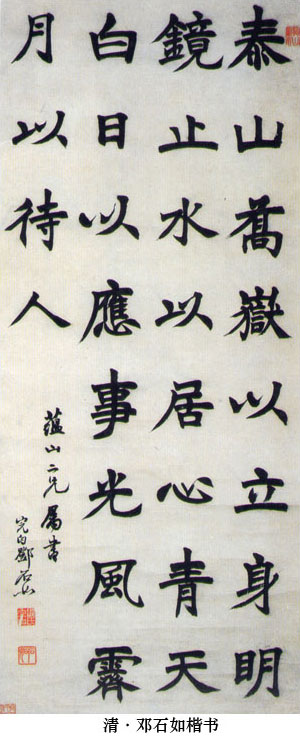 泰山喬嶽以立身明
鏡止水以居心青天
白日以應事光風霽
月以待人
蕴山二兄屬書
完白鄧石如
清·邓石如楷书